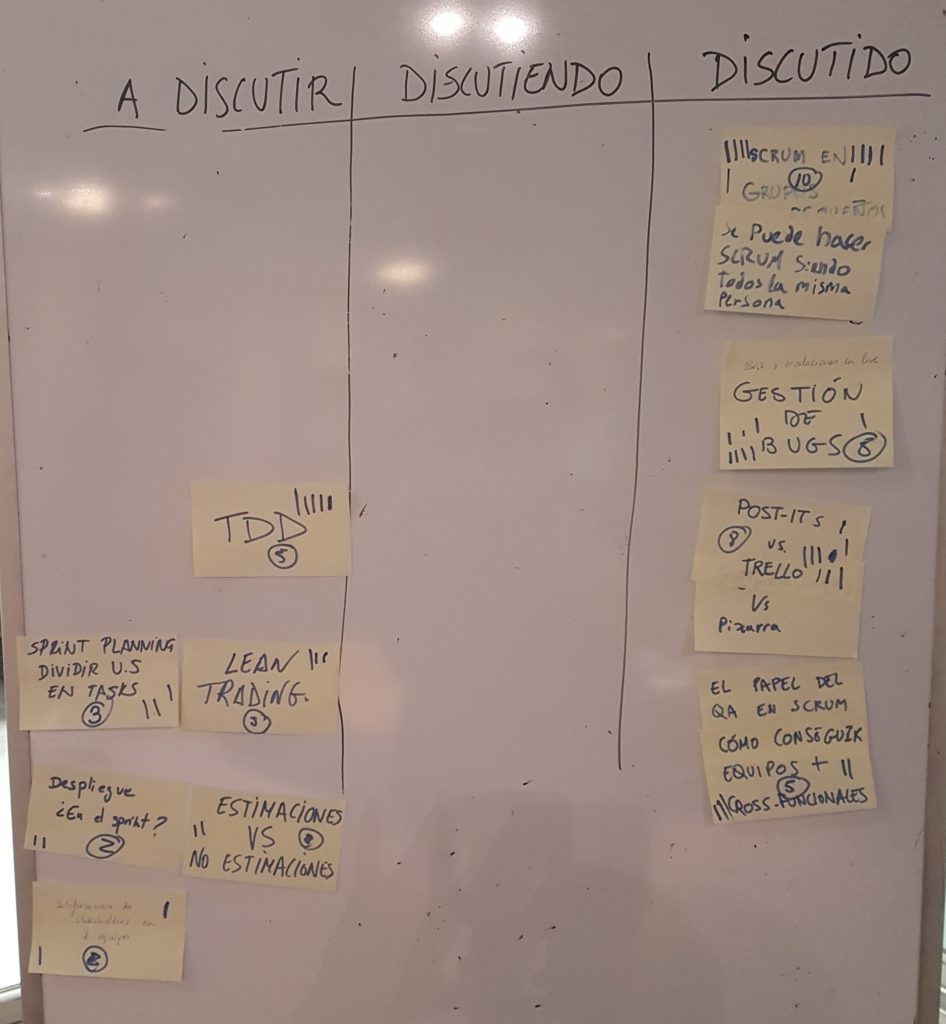 A DISCUTIR
DISCUTIENDO
DISCUTIDO
TDD
5
SPRINT PLANNING
DIVIDIR U.S
EN TASKS
3
LEAN
TRADING.
3
Despliegue
¿En el sprint?
2
ESTIMACIONES
VS
NO ESTIMACIONES
de
stakeholders en
el equipo
2
SCRUM EN
10
GRUPOS
PEQUEÑOS
Se Puede hacer
SCRUM Siendo
todos la misma
Persona
GESTIÓN
DE
BUGS 8
POST-ITs
8 vs.
TRELLO
Vs
Pizarra
EL PAPEL DEL
QA EN SCRUM
CÓMO CONSEGUIR
EQUIPOS +
5
CROSS-FUNCIONALES